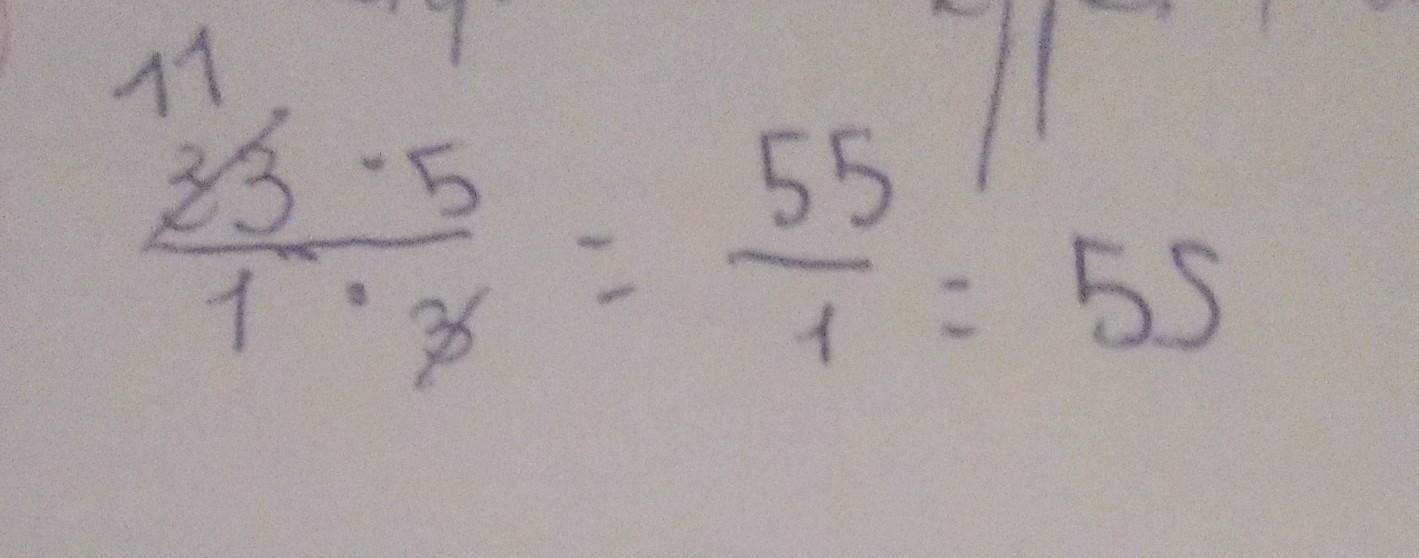 11
33 · 5 / 1 · 3 = 55 / 1 = 55